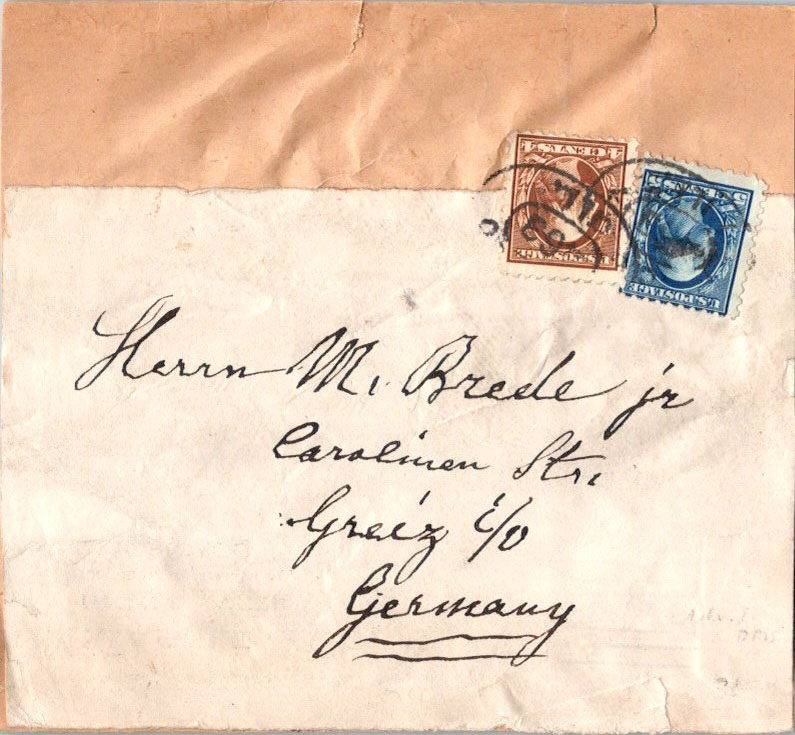 4 CENTS 4
U.S. POSTAGE
5 CENTS 5
U.S. POSTAGE
Herrn M. Brede jr
Carolinen Str.
Greiz i/v
Germany